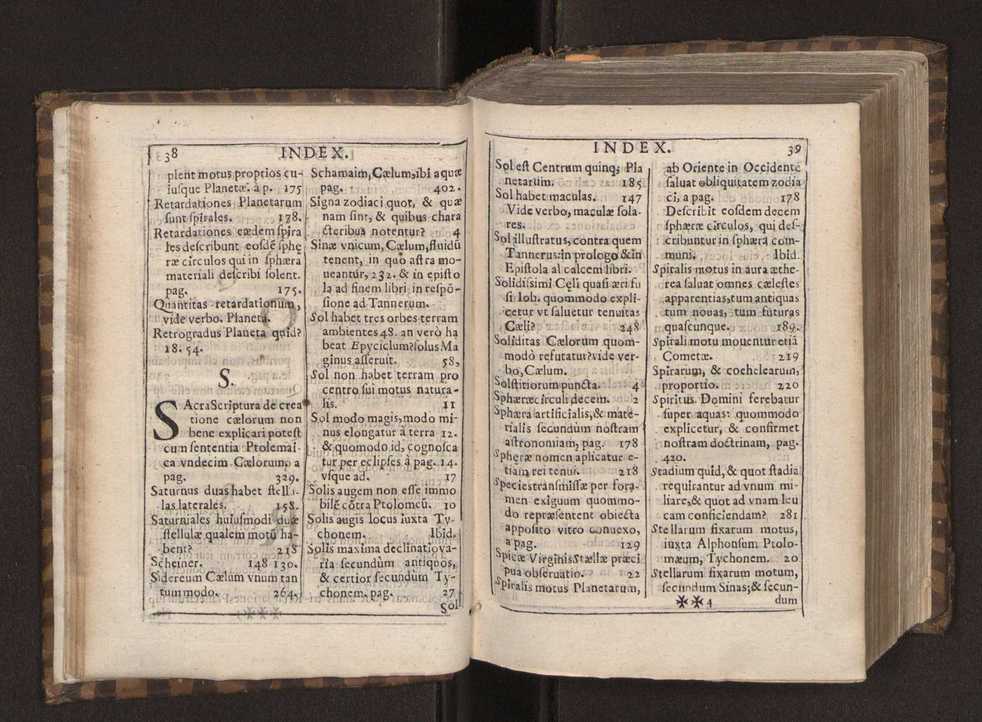 38 INDEX.
plent motus proprios cu-
iusque Planetæ. à p. 175
Retardationes Planetarum
sunt spirales. 178.
Retardationes eædem spira
les describunt eosdē sphę
ræ circulos qui in sphæra
materiali describi solent.
pag. 175.
Quantitas retardationum,
vide verbo. Planeta.
Retrogradus Planeta quid?
18. 54.
S.
SAcra Scriptura de crea
tione cælorum non
bene explicari potest
cum sententia Ptolemai
ca vndecim Cælorum, a
pag. 329.
Saturnus duas habet stellu
las laterales. 158.
Saturniales huiusmodi duæ
stellulæ qualem motū ha-
bent? 218
Scheiner. 148 130.
Sidereum Cælum vnum tan
tum modo. 264.
Schamaim, Cælum, ibi aquæ
pag. 402.
Signa zodiaci quot, & quæ
nam sint, & quibus chara
cteribus notentur? 4
Sinæ vnicum, Cælum, fluidū
tenent, in quo astra mo-
ueantur, 232. & in episto
la ad finem libri in respō-
sione ad Tannerum.
Sol habet tres orbes terram
ambientes 48. an verò ha
beat Epyciclum? solus Ma
ginus asseruit. 58,
Sol non habet terram pro
centro sui motus natura-
lis. 11
Sol modo magis, modo mi-
nus elongatur à terra 12.
& quomodo id, cognosca
tur per eclipses à pag. 14.
vsque ad. 17
Solis augem non esse immo
bilē cōtra Ptolomeū. 10
Solis augis locus iuxta Ty-
chonem. Ibid.
Solis maxima declinatio va-
ria secundùm antiquos,
& certior secundùm Ty-
chonem. pag. 27
Sol
INDEX. 39
Sol est Centrum quinq; Pla
netarum. 185
Sol habet maculas. 147
Vide verbo, maculæ sola-
res.
Sol illustratus, contra quem
Tannerus: in prologo & in
Epistola al calcem libri.
Solidissimi Cęli quasi æri fu
si Iob. quommodo expli-
cetur vt saluetur tenuitas
Cæli? 248
Soliditas Cælorum quom-
modò refutatur? vide ver-
bo, Cælum.
Solstitiorum puncta. 4
Sphæræ circuli decem. 2
Sphæra artificialis, & mate-
rialis secundùm nostram
astronomiam, pag. 178
Spheræ nomen aplicatur e-
tiam rei tenui. 218
Species transmissæ per fora-
men exiguum quommo-
do repræsentent obiecta
apposito vitro conuexo,
a pag. 129
Spicæ Virginis Stellæ præci
pua obseruatio. 22
Spiralis motus Planetarum,
ab Oriente in Occidente
saluat obliquitatem zodia
ci, a pag. 178
Describit eosdem decem
sphæræ circulos, qui des-
cribuntur in sphæra com-
muni. Ibid.
Spiralis motus in aura æthe-
rea saluat omnes cælestes
apparentias, tum antiquas
tum nouas, tum futuras
quascunque. 189.
Spirali motu mouentur etiā
Cometæ. 219
Spirarum, & cochelearum,
proportio. 220
Spiritus Domini ferebatur
super aquas: quommodo
explicetur, & confirmet
nostram doctrinam, pag.
420.
Stadium quid, & quot stadia
requirantur ad vnum mi-
liare, & quot ad vnam leu
cam conficiendam? 281
Stellarum fixarum motus,
iuxta Alphonsum Ptolo-
mæum, Tychonem. 20
Stellarum fixarum motum,
secundum Sinas; & secun-
✠✠ 4 dum